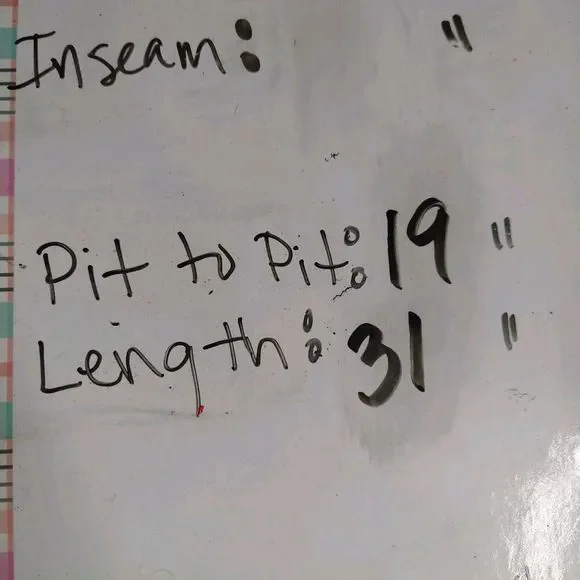 Inseam: "
Pit to Pit: 19 "
Length: 31 "